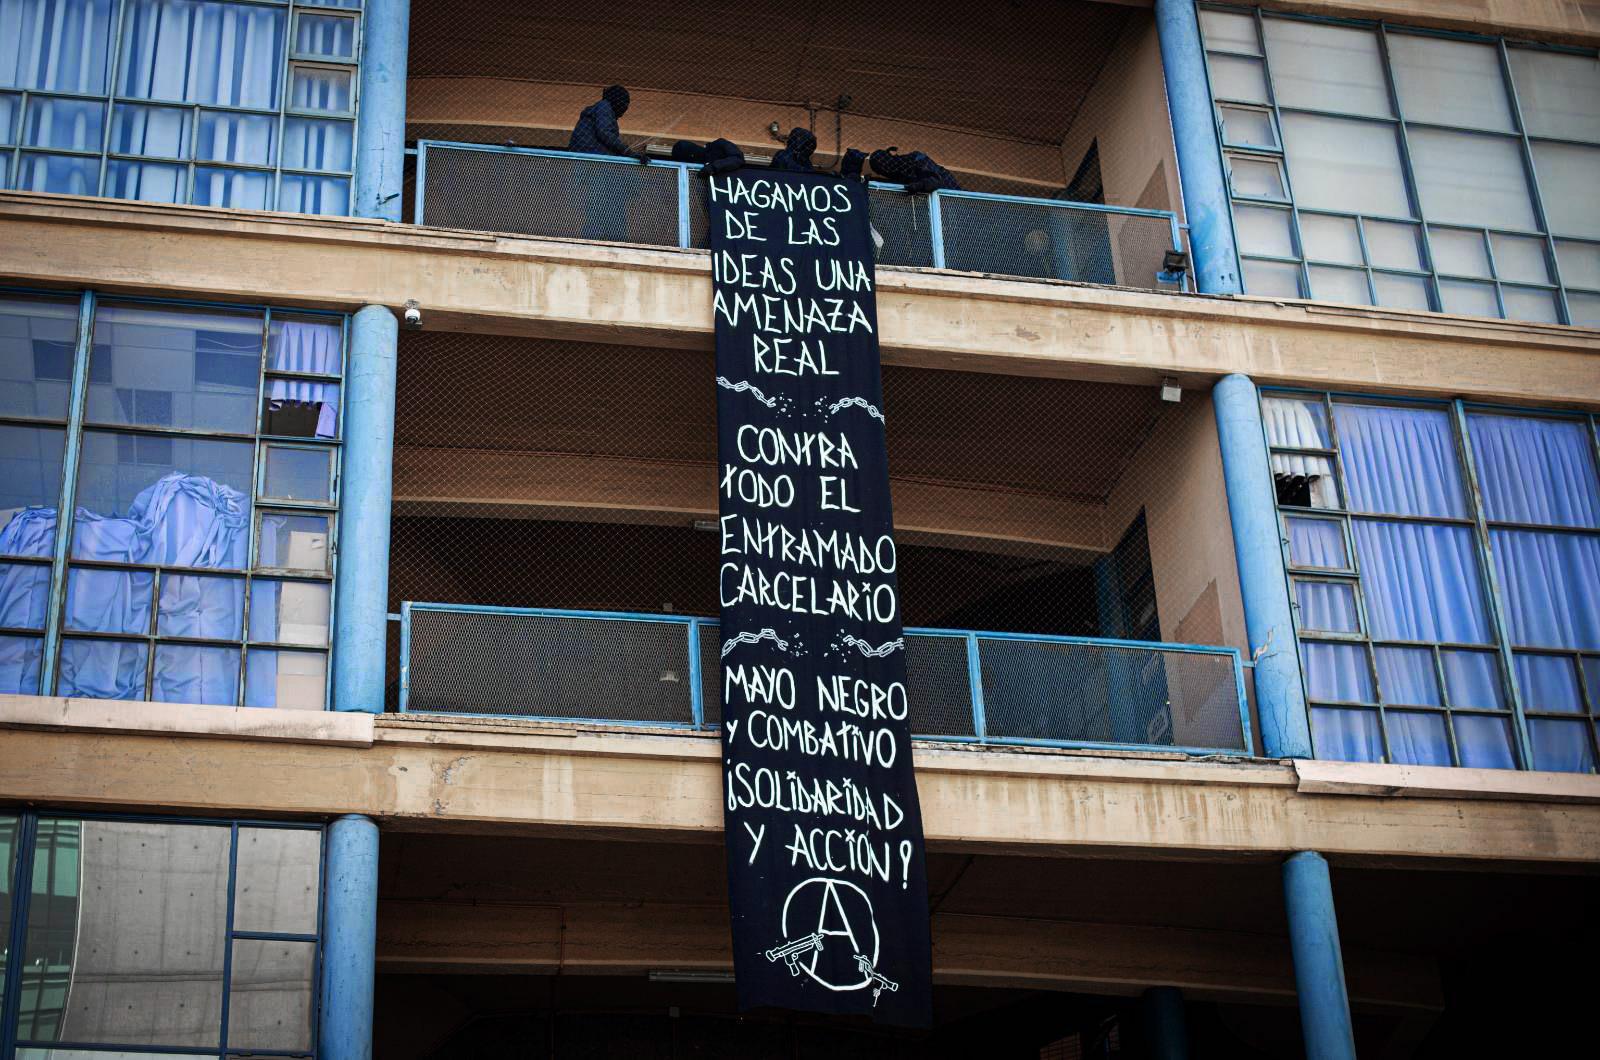 HAGAMOS
DE LAS
IDEAS UNA
AMENAZA
REAL
CONTRA
TODO EL
ENTRAMADO
CARCELARIO
MAYO NEGRO
y COMBATIVO
¡SOLIDARIDAD
Y ACCIÓN!
A